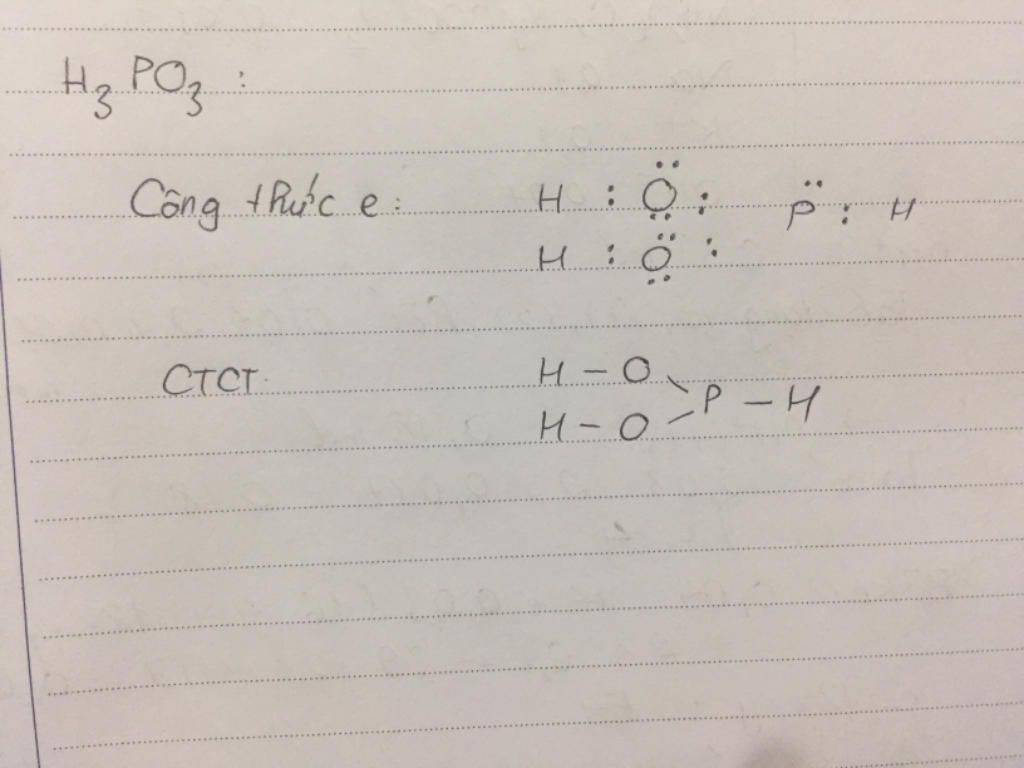 H₃PO₃ :
Công thức e : H : Ö : P̈ : H
H : Ö :
CTCT: H – O \
P – H
H – O /